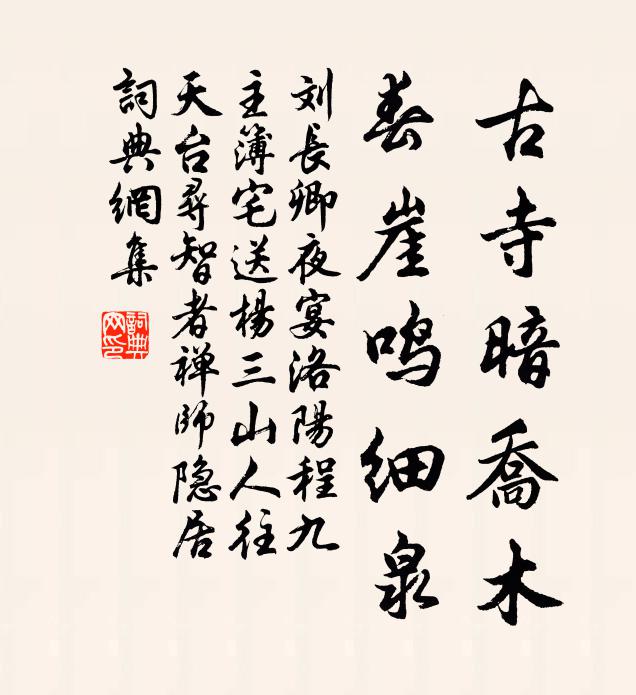 古寺暗喬木
春崖鸣细泉
刘長卿夜宴洛陽程九
主簿宅送楊三山人往
天台尋智者禅师隐居
詞典網集
詞典
网印